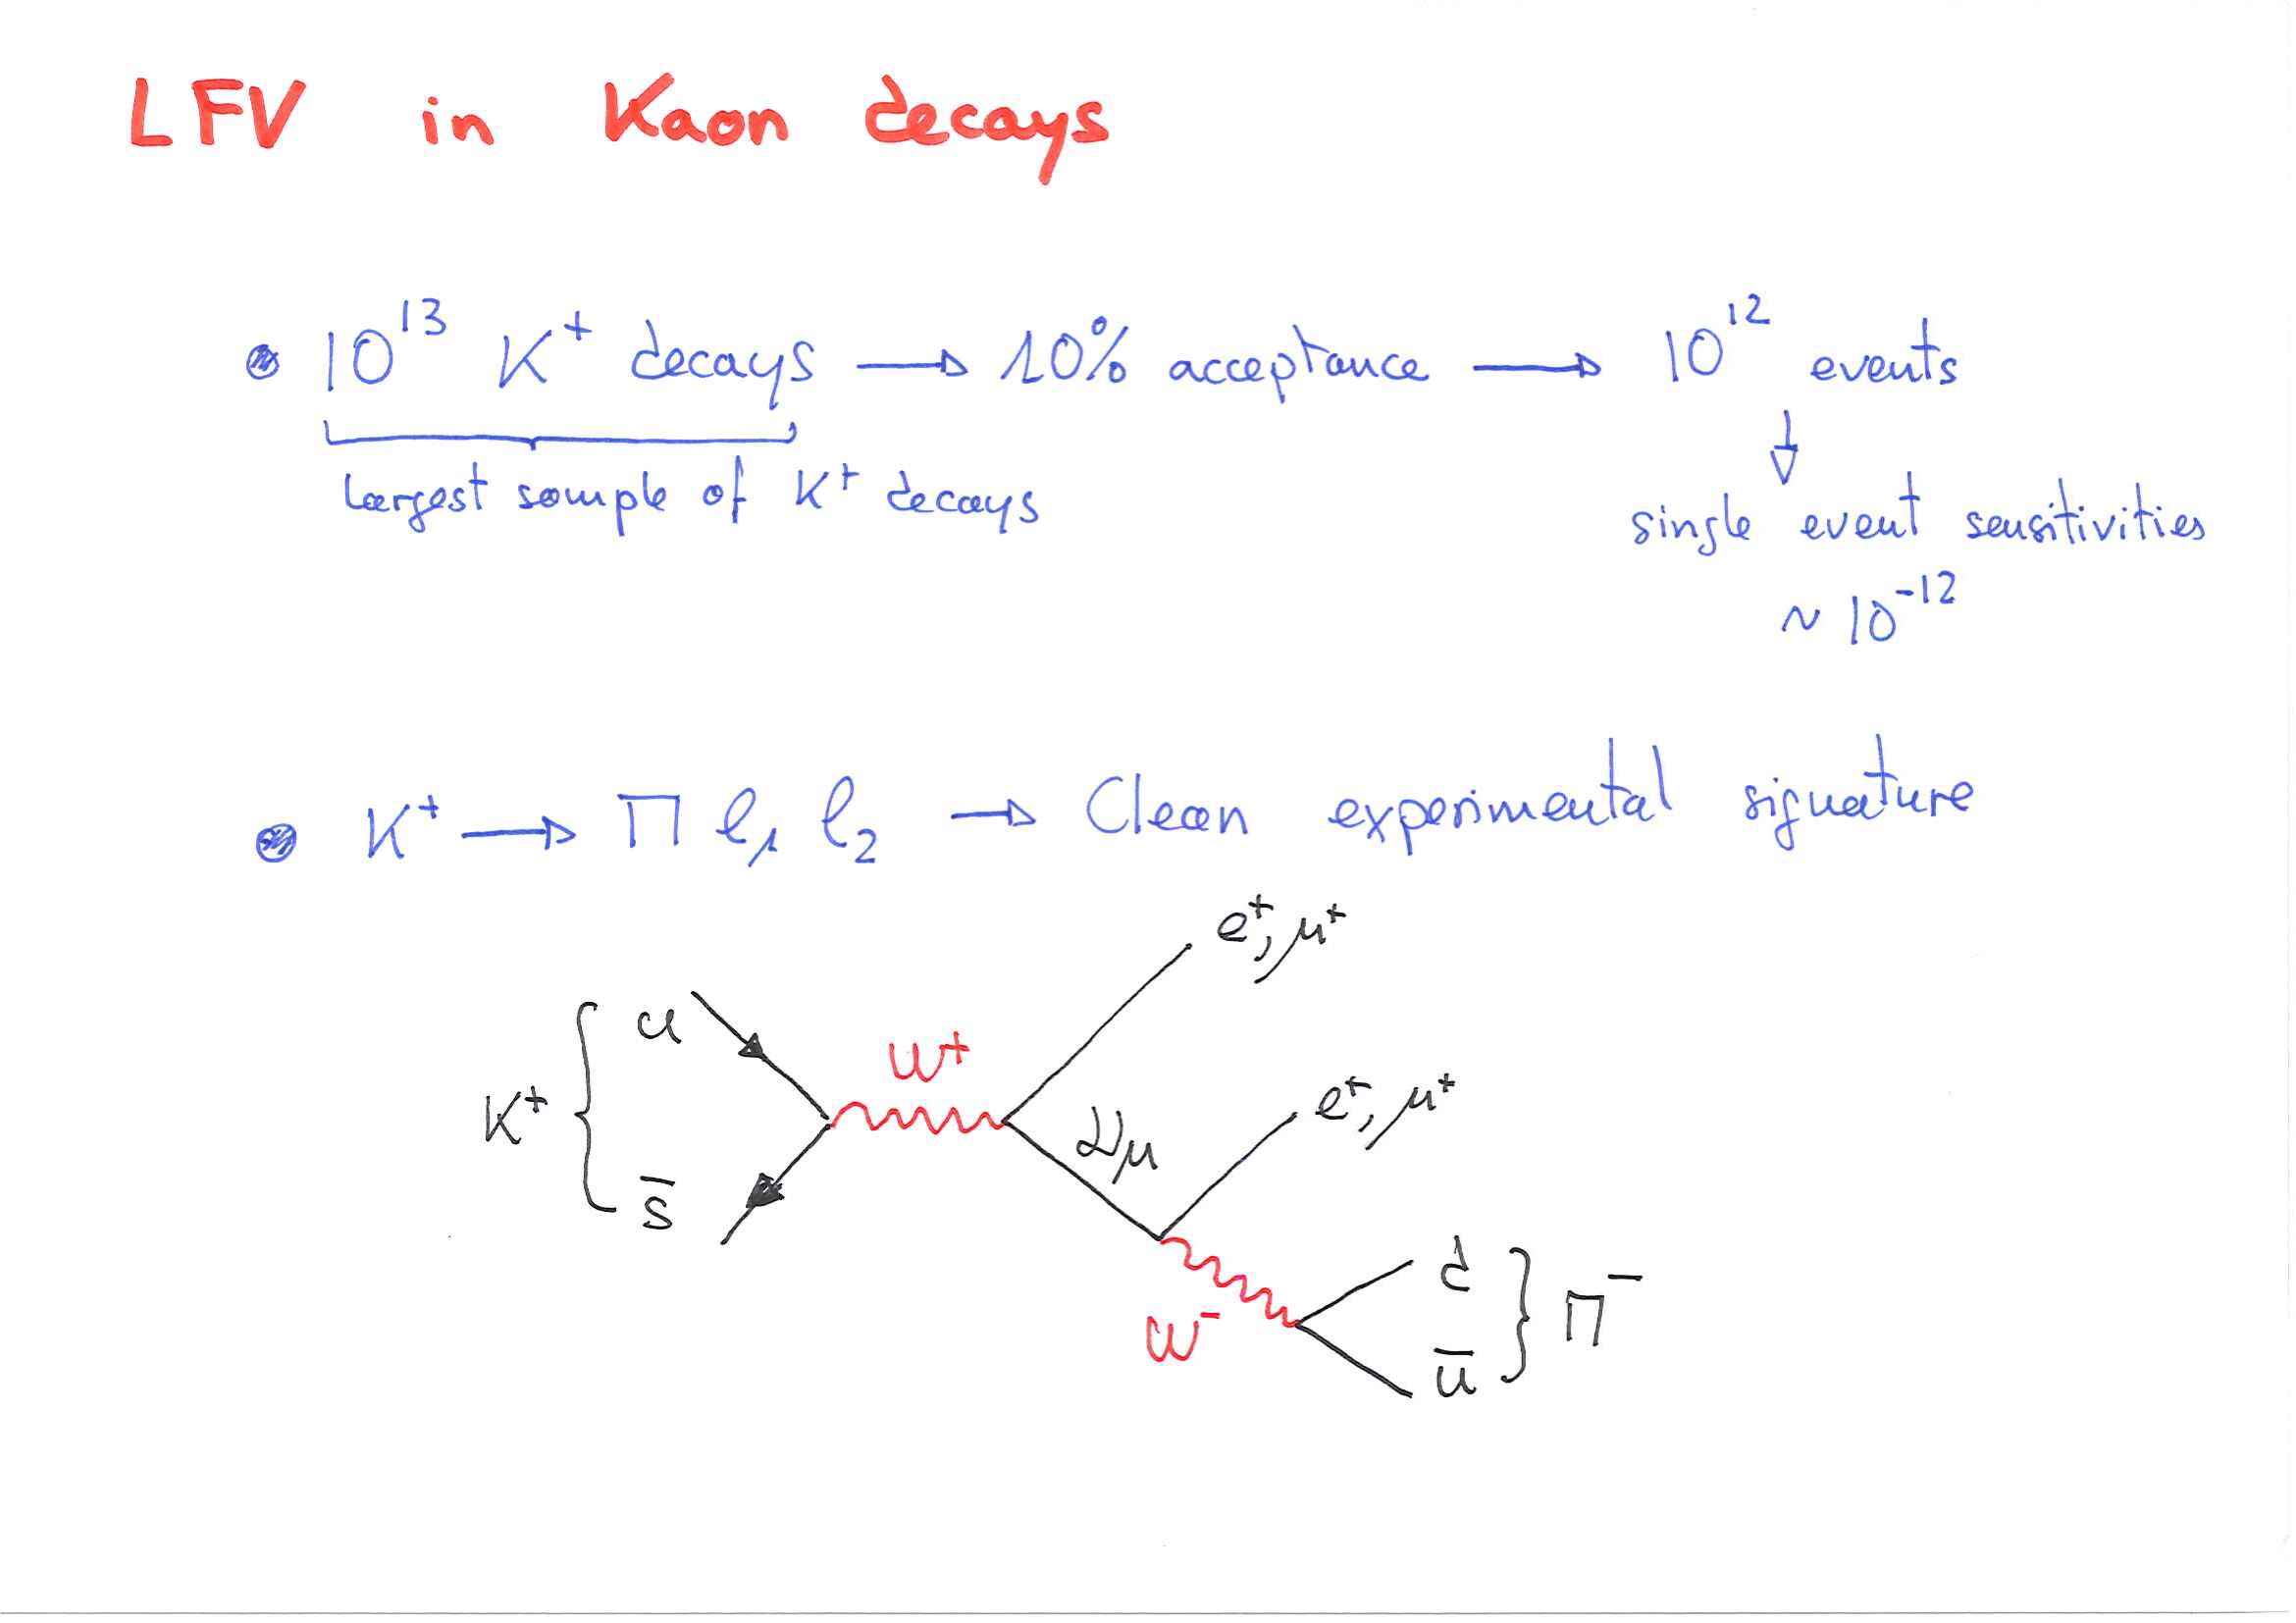 LFV in Kaon decays
10¹³ K⁺ decays → 10% acceptance → 10¹² events
largest sample of K⁺ decays
single event sensitivities
~ 10⁻¹²
K⁺ → Π ℓ₁ ℓ₂ → Clean experimental signature
e⁺, μ⁺
u
W⁺
K⁺
e⁺, μ⁺
νμ
s̄
d
Π⁻
W⁻
ū